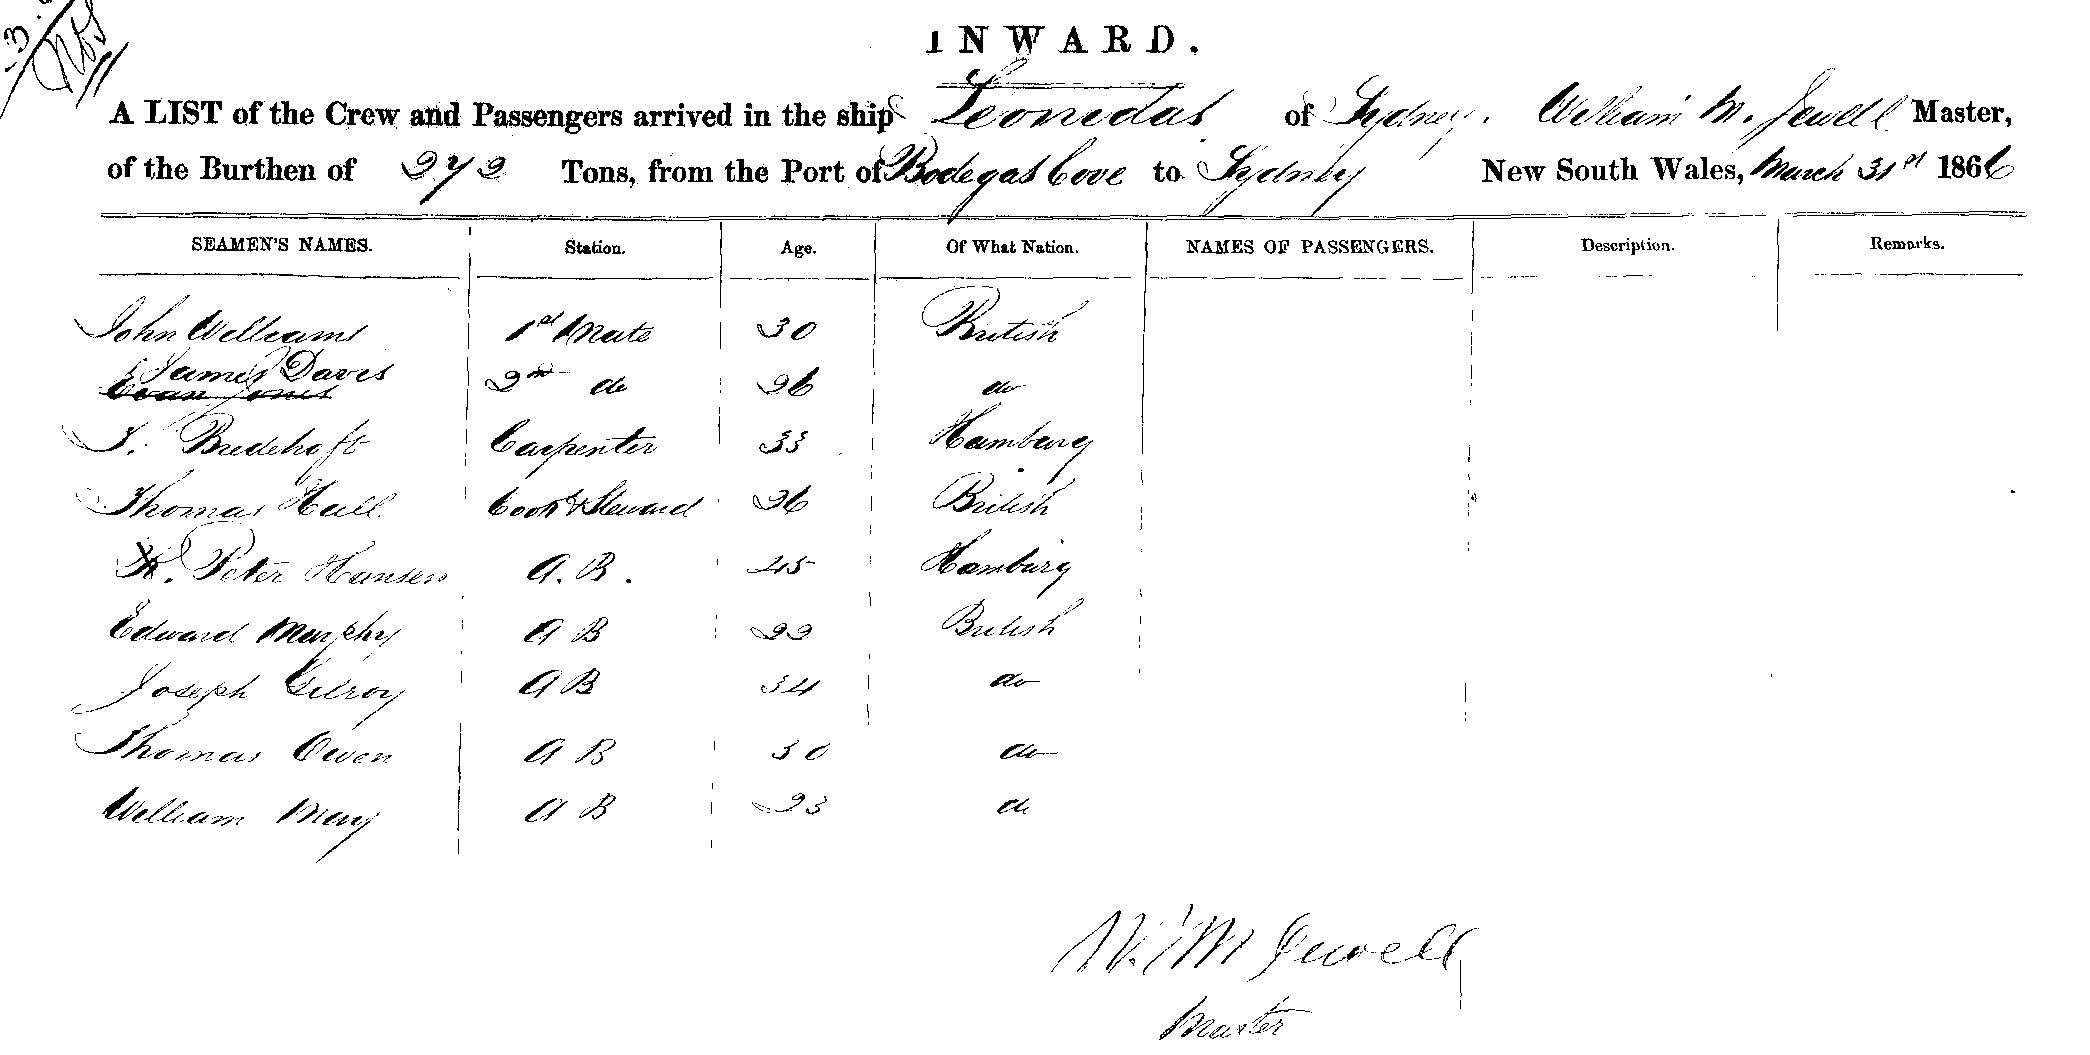 INWARD.
A LIST of the Crew and Passengers arrived in the ship Leonidas of Sydney, William M. Jewell Master,
of the Burthen of 272 Tons, from the Port of Bodegas Cove to Sydney New South Wales, March 31st 1866
SEAMEN'S NAMES. Station. Age. Of What Nation. NAMES OF PASSENGERS. Description. Remarks.
John Williams 1st Mate 30 British
James Davis
Evan Jones 2nd do 26 do
T. Bredehoft Carpenter 33 Hamburg
Thomas Hall Cook & Steward 26 British
Peter Hansen A. B. 45 Hamburg
Edward Murphy A B 22 British
Joseph Gilroy A B 34 do
Thomas Owen A B 30 do
William May A B 23 do
W. M Jewell
Master